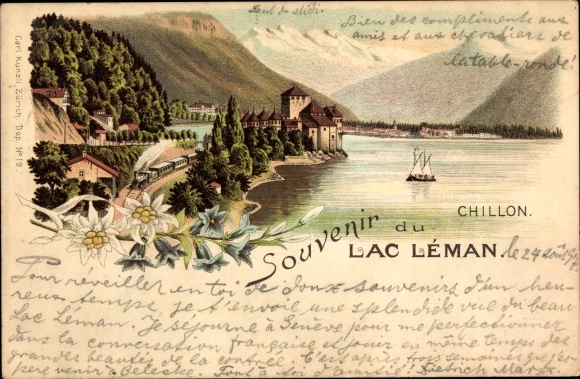 Dent du Midi
Bien des compliments aux
amis et aux chevaliers de
la table-ronde!
Carl Künzli, Zürich, Dep. No 19
CHILLON.
Souvenir du
LAC LÉMAN.
le 24 août
Pour réveiller en toi de doux souvenirs d'un heu-
reux temps, je t'envoie une splendide vue du beau
Lac Léman. Je séjourne à Genève pour me perfectionner
dans la conversation française et jouir en même temps des
grandes beautés de la contrée. C'est après trois semaines que j'es-
père venir à Tout à toi d'amitié! Dietrich